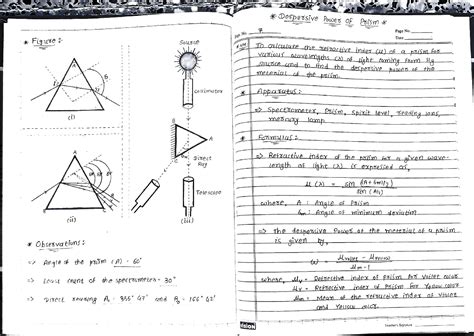 * Figure :
(i)
A
(ii)
Source
Collimator
A
Direct Ray
Telescope
(iii)
* Observations :
=> Angle of the prism (A) = 60°
=> Least count of the spectrometer = 30"
=> Direct reading
* Despersive Power of Prism *
Page No.
Date
To calculate the refractive index (μ) of a prism for
various wavelengths (λ) of light coming from Hg
source and to find the despersive power of the
material of the prism.
* Apparatus :
=> Spectrometer, Prism, Spirit level, reading lens,
mercury lamp
* Formulas :
=> Refractive index of the prism for a given wave-
length of light (λ) is expressed as,
μ (λ) = sin
where, A : Angle of Prism
: Angle of minimum deviation
=> the despersive Power of the material of a prism
is given by,
ω =
where, = Refractive index of Prism for violet color
= Refractive index of Prism for Yellow color
= Mean of the refractive index of violet
and Yellow color
Teacher's Signature